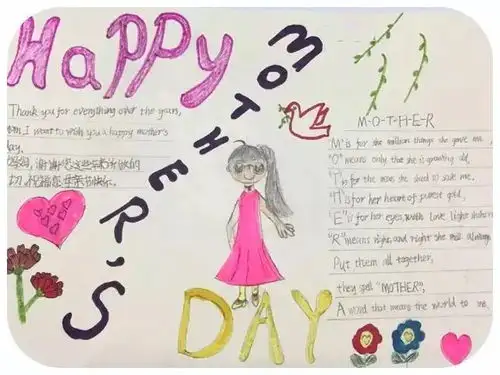 HaPPy
MOTHER'S
DAY
Thank you for everything over the years,
mom, I want to wish you a happy mother's
day.
妈妈,谢谢您这些年所做的
一切,祝福您母亲节快乐。
M-O-T-H-E-R
"M" is for the million things she gave me,
"O" means only that she is growing old,
"T" is for the tears she shed to save me,
"H" is for her heart of purest gold,
"E" is for her eyes, with love light
"R" means right, and right she will always
Put them all together,
they spell "MOTHER",
A word that means the world to me.